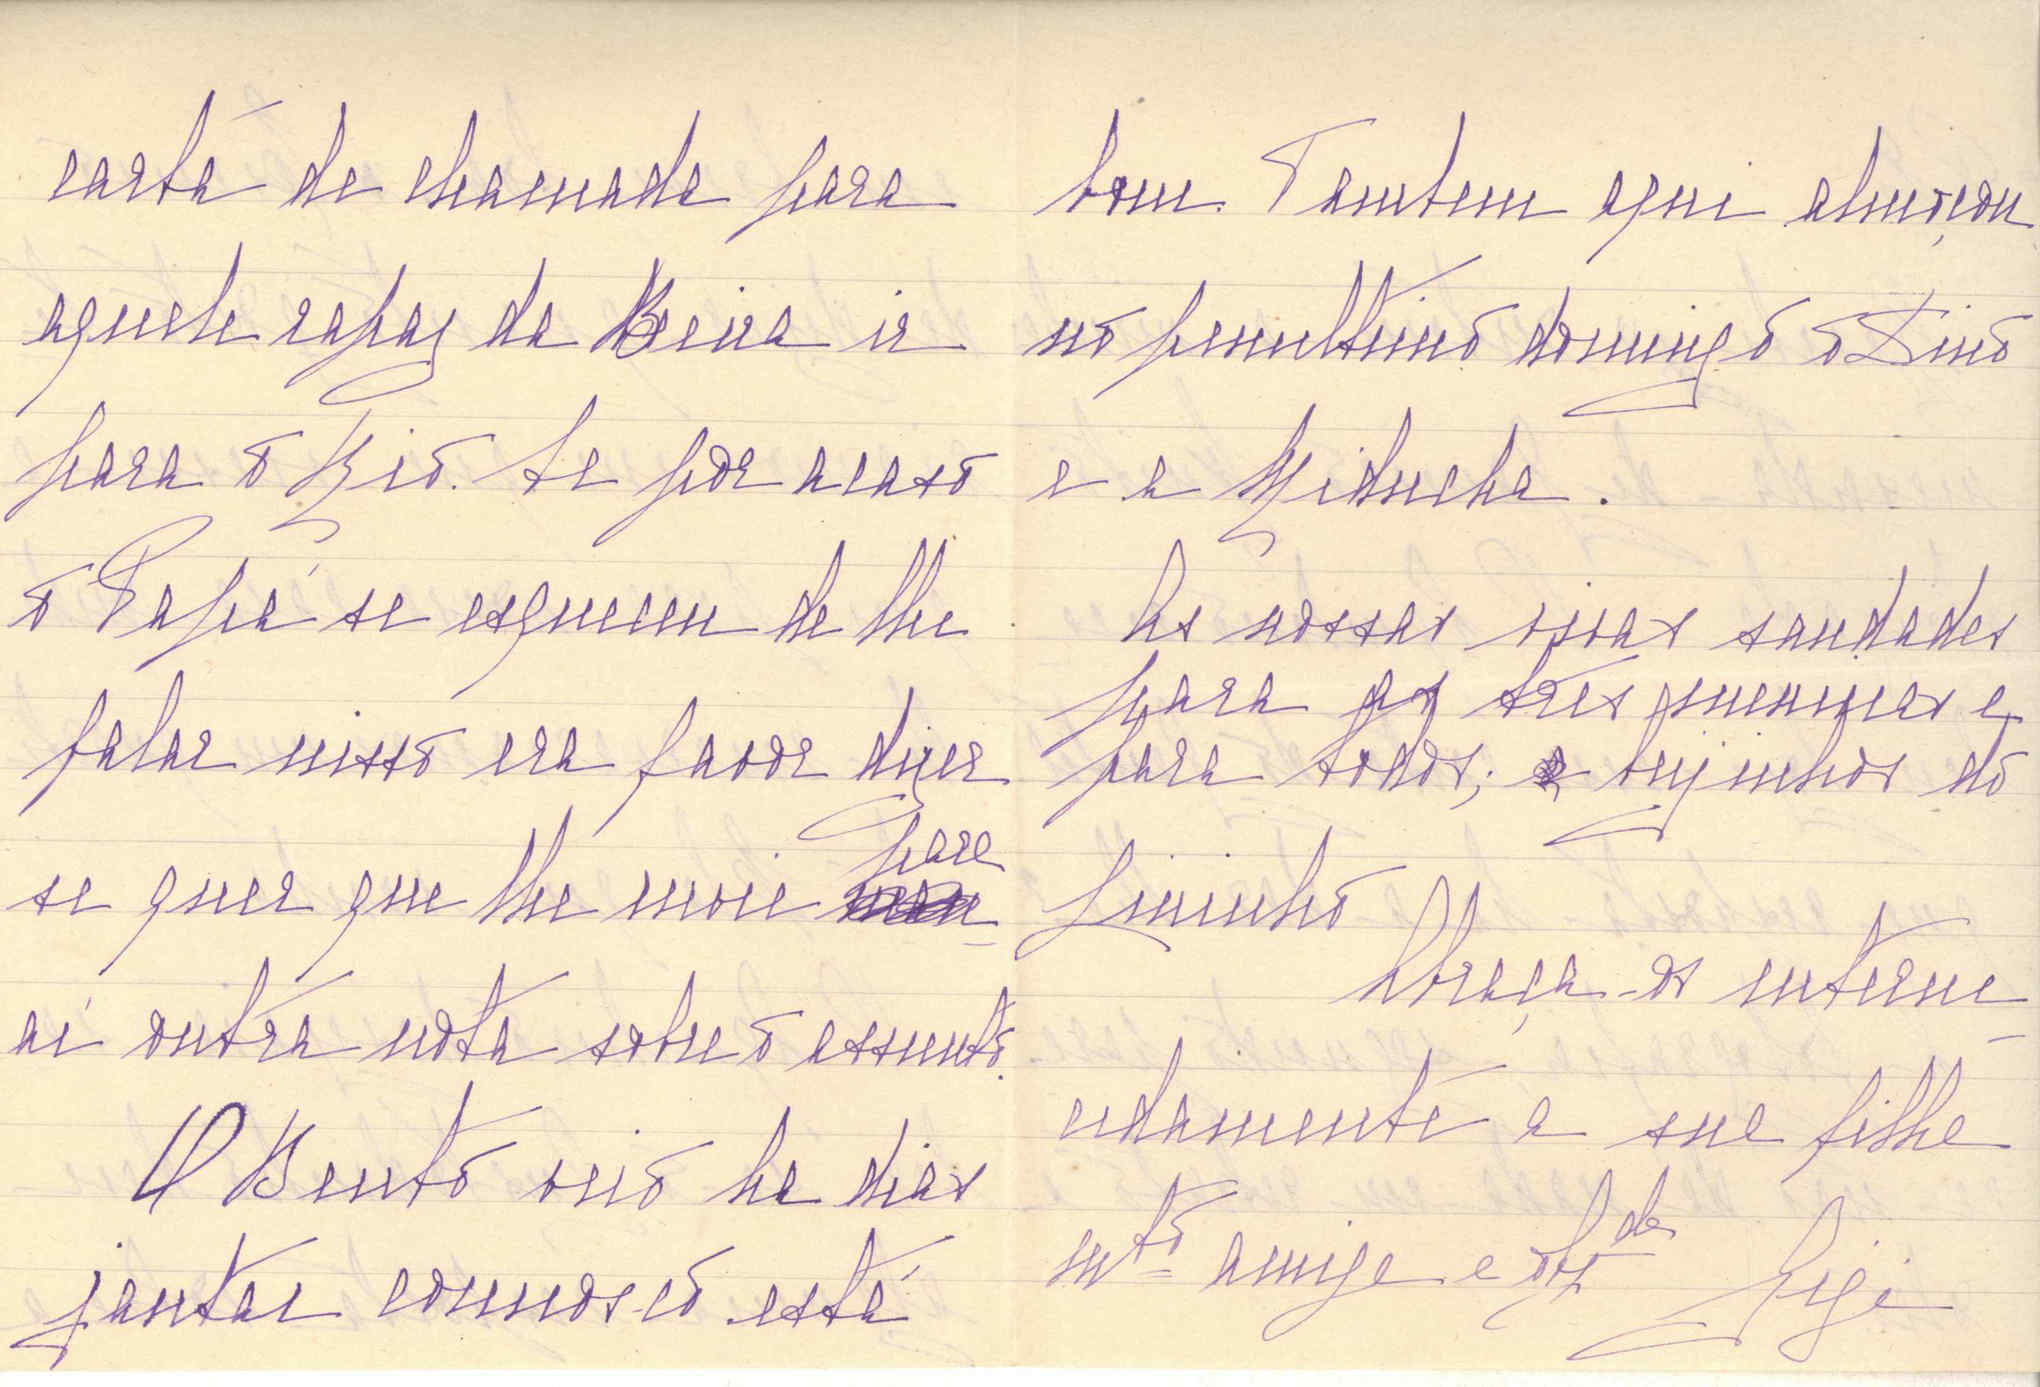 carta de chamada para
aquele rapaz da Beira ir
para o Rio. Se por acaso
o Papá se esqueceu de lhe
falar nisso era favor dizer
se quer que lhe envie para
aí outra nota sobre o assunto.
O Bento veio ha dias
jantar connosco está
bom. Tambem aqui almoçou
no penultimo domingo o Dino
e a Miducha.
As nossas vivas saudades
para as três meninas e
para todos; beijinhos do
Lininho
Abraça-os enterne
cidamente a sua filha
mto amiga e obgda Gigi